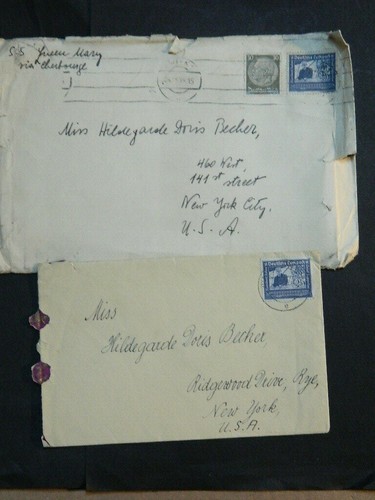 S.S. Queen Mary
via Cherbourg
Miss Hildegarde Doris Becher,
460 West,
141st street
New York City.
U. S. A.
Miss
Hildegarde Doris Becher,
Ridgewood Drive, Rye,
New York,
U.S.A.